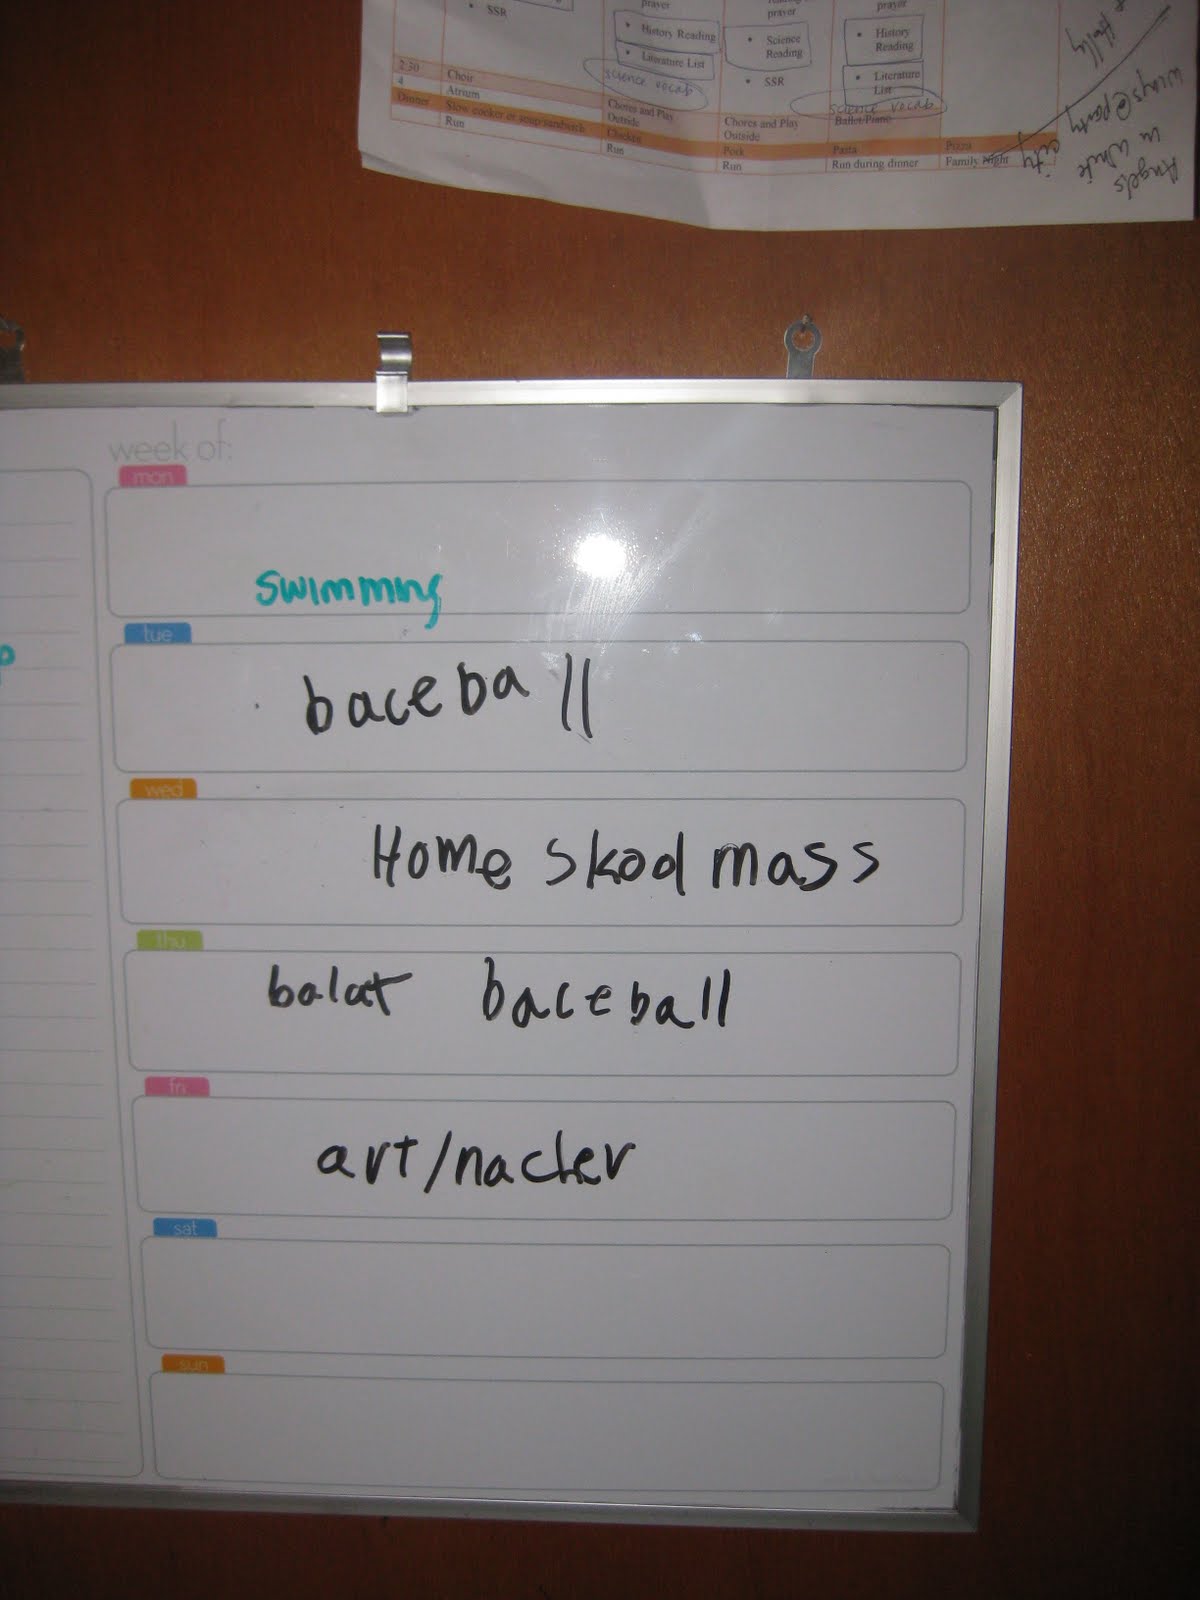 prayer
prayer
prayer
• SSR
• History Reading
• Science Reading
• History Reading
• Literature List
• SSR
• Literature List
science vocab
science vocab
2:30 Choir
4 Atrium
Chores and Play Outside
Chores and Play Outside
Ballet/Piano
Dinner Slow cooker or soup/sandwich Chicken Pork Pasta Pizza
Run Run Run Run during dinner Family Night
Holly
Angels
in white
wings@party
city
week of:
mon
swimming
tue
baceball
wed
Home skool mass
thu
balat baceball
fri
art/nacher
sat
sun